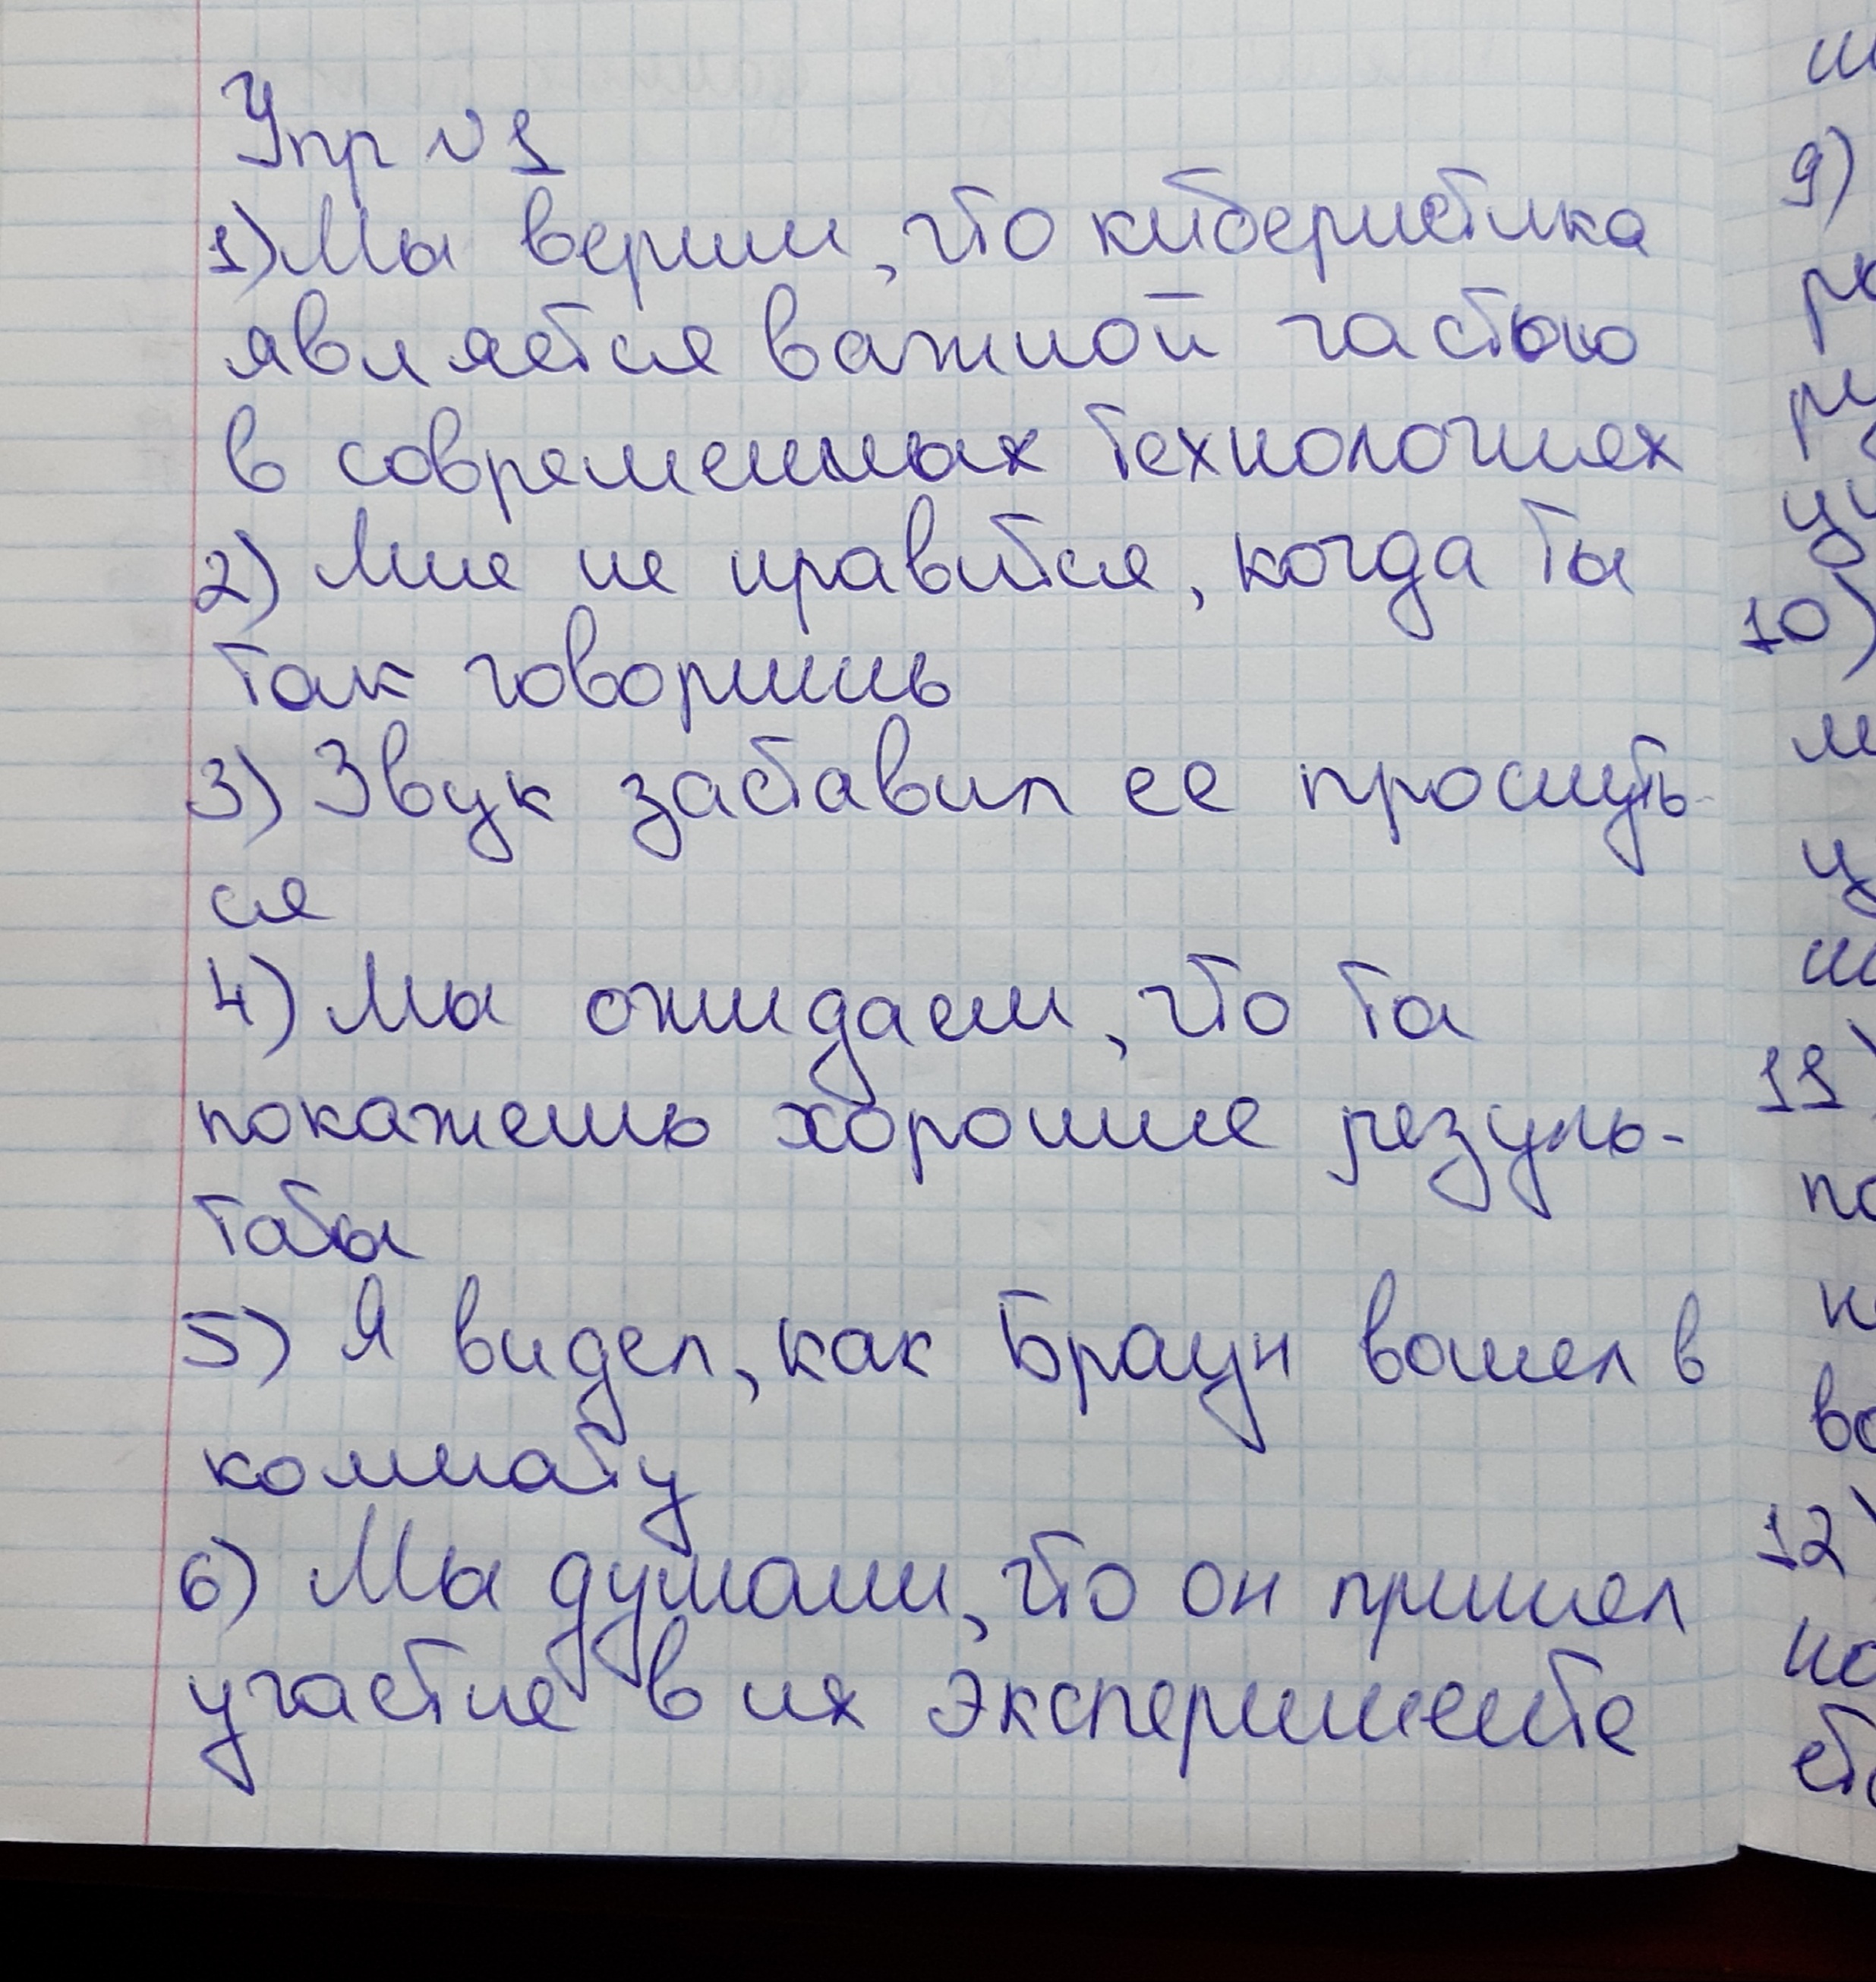 Упр № 1
1) Мы верим, что киберистика
является важной частью
в современных технологиях
2) Мне не нравится, когда ты
так говоришь
3) Звук заставил ее проснуть-
ся
4) Мы ожидаем, что ты
покажешь хорошие резуль-
таты
5) Я видел, как Браун вошел в
комнату
6) Мы думали, что он принял
участие в их эксперименте
9)
10)
11)
12)